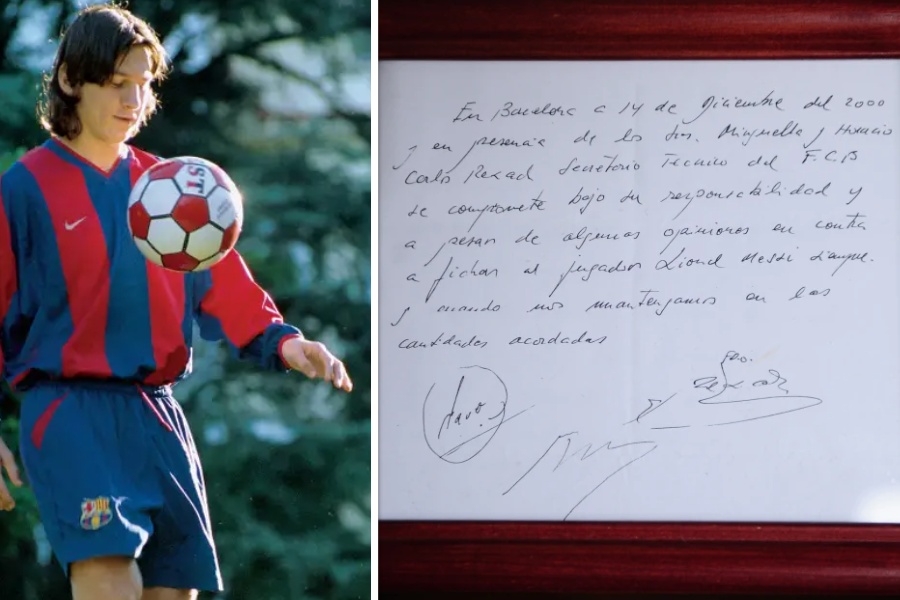 ST
En Barcelona a 14 de Diciembre del 2000
y en presencia de los Srs. Minguella y Horacio
Carlo Rexach Secretario Tecnico del F.C.B
se compromete bajo su responsabilidad y
a pesar de algunas opiniones en contra
a fichar al jugador Lionel Messi siempre.
y cuando nos mantengamos en las
cantidades acordadas